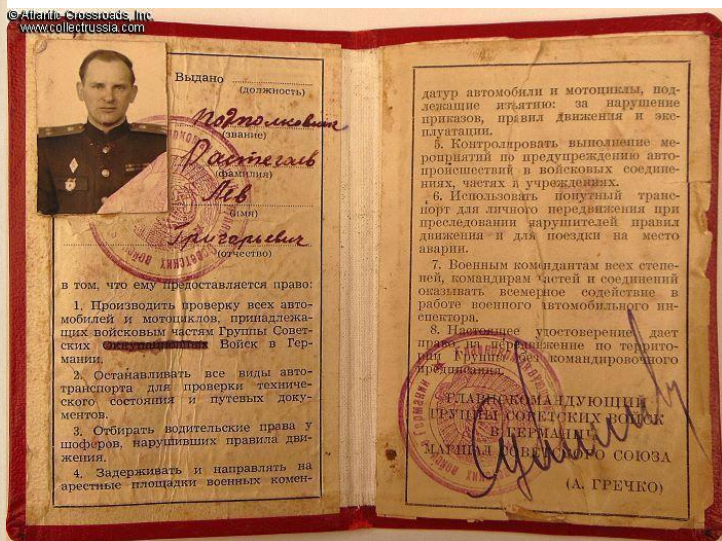 © Atlantic Crossroads, Inc.
www.collectrussia.com
Выдано
(должность)
Подполковник
(звание)
(фамилия)
Лев
(имя)
Григорьевич
(отчество)
в том, что ему предоставляется право:
1. Производить проверку всех авто-
мобилей и мотоциклов, принадлежа-
щих войсковым частям Группы Совет-
ских Оккупационных Войск в Гер-
мании.
2. Останавливать все виды авто-
транспорта для проверки техничес-
кого состояния и путевых доку-
ментов.
3. Отбирать водительские права у
шоферов, нарушивших правила дви-
жения.
4. Задерживать и направлять на
арестные площадки военных комен-
датур автомобили и мотоциклы, под-
лежащие изъятию: за нарушение
приказов, правил движения и экс-
плуатации.
5. Контролировать выполнение ме-
роприятий по предупреждению авто-
происшествий в войсковых соедине-
ниях, частях и учреждениях.
6. Использовать попутный транс-
порт для личного передвижения при
преследовании нарушителей правил
движения и для поездки на место
аварии.
7. Военным комендантам всех степе-
ней, командирам частей и соединений
оказывать всемерное содействие в
работе военного автомобильного ин-
спектора.
8. Настоящее удостоверение дает
право на передвижение по террито-
рии Группы без командировочного
предписания.
ГЛАВНОКОМАНДУЮЩИЙ
ГРУППЫ СОВЕТСКИХ ВОЙСК
В ГЕРМАНИИ
МАРШАЛ СОВЕТСКОГО СОЮЗА
(А. ГРЕЧКО)